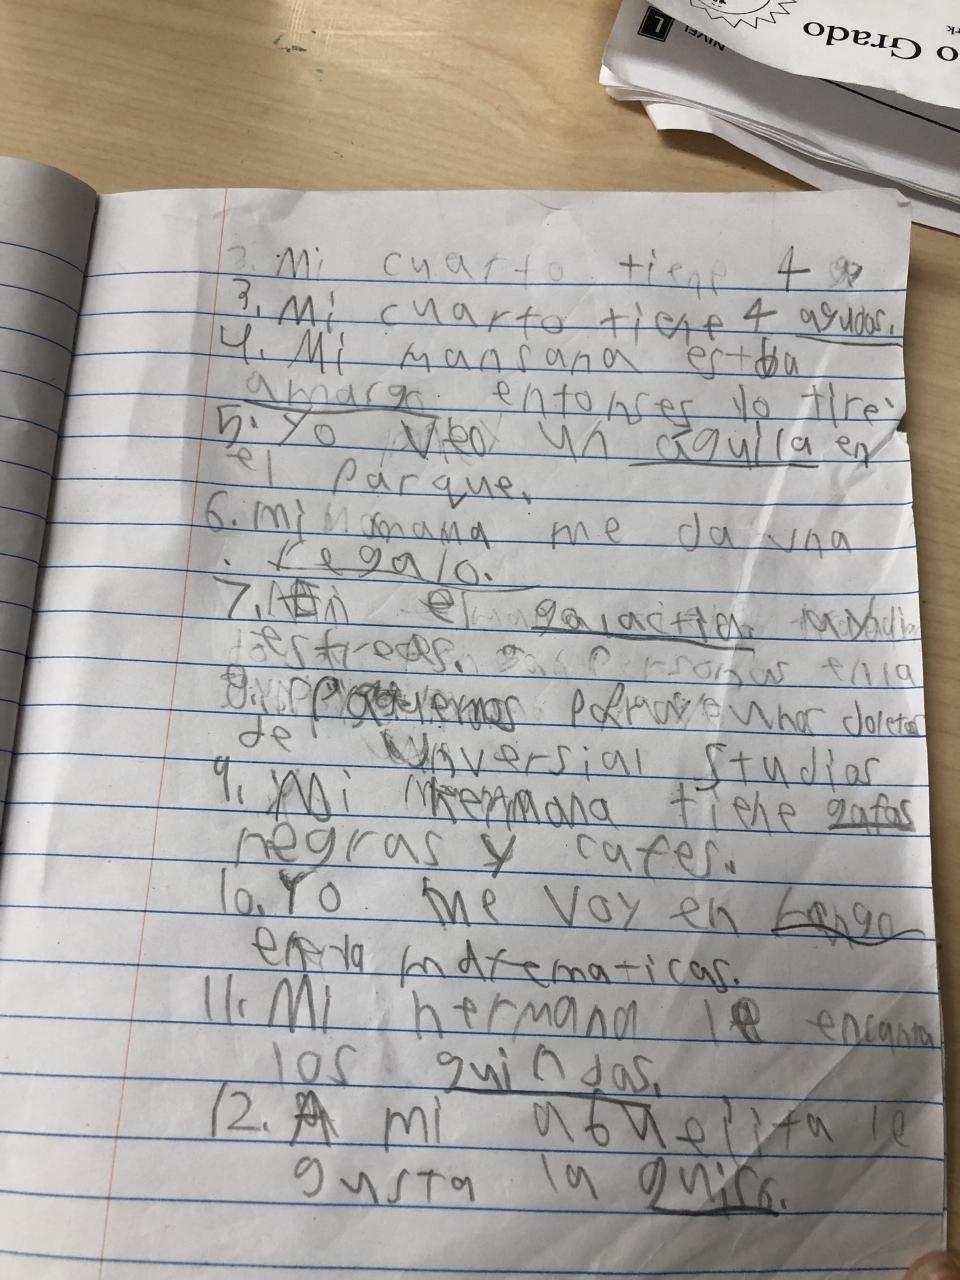 o Grado
NIVEL
L
3. Mi cuarto tiene 4
3. Mi cuarto tiene 4 agudos.
4. Mi mansana estba
amarga entonses lo tire
5. Yo veo un aguila en
el parque.
6. mi mama me da una
regalo.
7. En el
enia
8.
de Unversial Studios
9. Mi hermana tiene gafas
negras y cafes.
10. Yo me voy en
matematicas.
11. Mi hermana le encanta
los guindas.
12. A mi abuelita le
gusta la